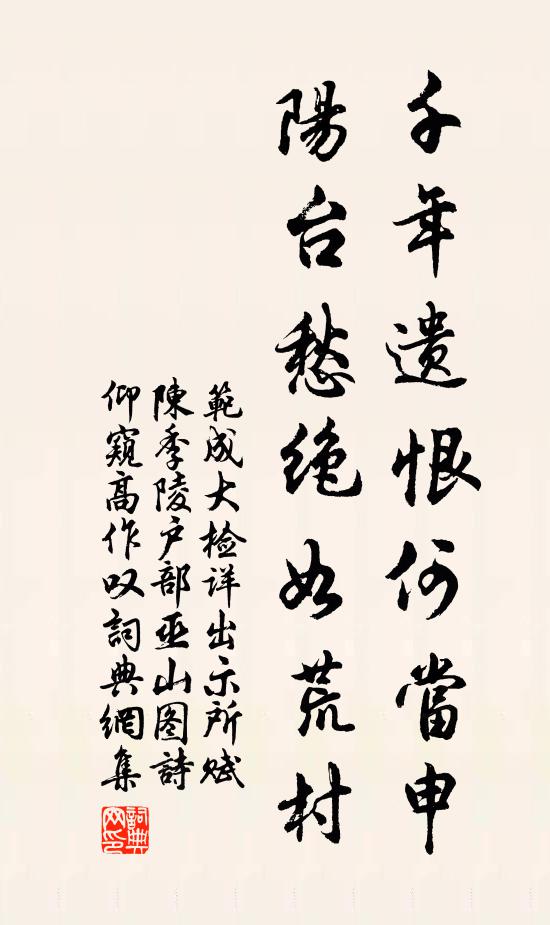 千年遗恨何當申
陽台愁绝如荒村
範成大检详出示所赋
陳季陵户部巫山图詩
仰窺高作叹詞典網集
詞典
网印